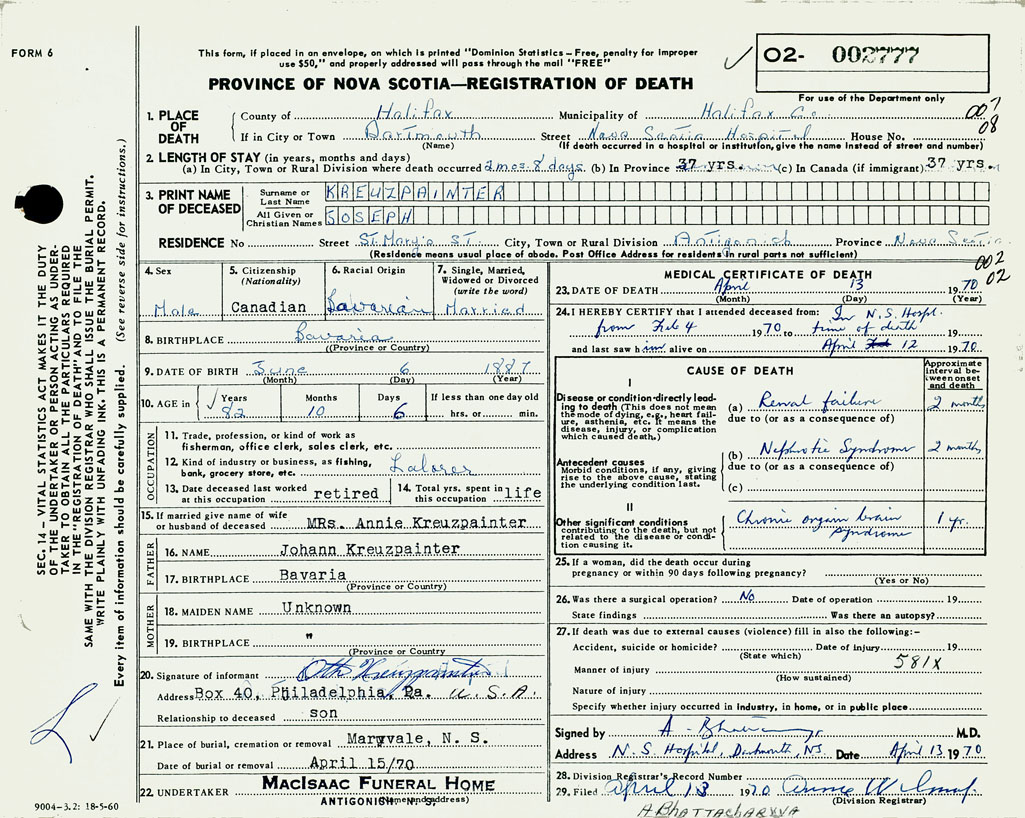 FORM 6
This form, if placed in an envelope, on which is printed "Dominion Statistics – Free, penalty for improper
use $50," and properly addressed will pass through the mail "FREE"
O2- 002777
PROVINCE OF NOVA SCOTIA—REGISTRATION OF DEATH
For use of the Department only
1. PLACE OF DEATH
County of Halifax Municipality of Halifax Co. 007
If in City or Town Dartmouth Street Nova Scotia Hospital House No. 08
(Name) (If death occurred in a hospital or institution, give the name instead of street and number)
2. LENGTH OF STAY (in years, months and days)
(a) In City, Town or Rural Division where death occurred 2 mos. 8 days (b) In Province 37 yrs. (c) In Canada (if immigrant) 37 yrs.
3. PRINT NAME OF DECEASED
Surname or Last Name KREUZPAINTER
All Given or Christian Names JOSEPH
RESIDENCE No Street St. Mary's St. City, Town or Rural Division Antigonish Province Nova Scotia
(Residence means usual place of abode. Post Office Address for residents in rural parts not sufficient)
002
02
4. Sex
Male
5. Citizenship
(Nationality)
Canadian
6. Racial Origin
Bavarian
7. Single, Married,
Widowed or Divorced
(write the word)
Married
8. BIRTHPLACE Bavaria
(Province or Country)
9. DATE OF BIRTH June 6 1887
(Month) (Day) (Year)
10. AGE in Years 82 Months 10 Days 6 If less than one day old hrs. or min.
OCCUPATION
11. Trade, profession, or kind of work as
fisherman, office clerk, sales clerk, etc.
12. Kind of industry or business, as fishing,
bank, grocery store, etc. Laborer
13. Date deceased last worked
at this occupation retired
14. Total yrs. spent in
this occupation life
15. If married give name of wife
or husband of deceased MRs. Annie Kreuzpainter
FATHER
16. NAME Johann Kreuzpainter
17. BIRTHPLACE Bavaria
(Province or Country)
MOTHER
18. MAIDEN NAME Unknown
19. BIRTHPLACE "
(Province or Country)
20. Signature of informant Otto Kreuzpainter
Address Box 40, Philadelphia, Pa. U.S.A.
Relationship to deceased son
21. Place of burial, cremation or removal Maryvale, N. S.
Date of burial or removal April 15/70
22. UNDERTAKER MacIsaac Funeral Home
ANTIGONISH, N. S.
(Name and address)
MEDICAL CERTIFICATE OF DEATH
23. DATE OF DEATH April 13 1970
(Month) (Day) (Year)
24. I HEREBY CERTIFY that I attended deceased from: In N.S. Hospl.
from Feb 4 1970 to time of death
and last saw him alive on April Feb 12 1970
CAUSE OF DEATH
Approximate
interval be-
tween onset
and death
I
Disease or condition directly lead-
ing to death (This does not mean
the mode of dying, e.g., heart fail-
ure, asthenia, etc. It means the
disease, injury, or complication
which caused death.)
(a) Renal failure 2 months
due to (or as a consequence of)
Antecedent causes
Morbid conditions, if any, giving
rise to the above cause, stating
the underlying condition last.
(b) Nephrotic Syndrome 2 months
due to (or as a consequence of)
(c)
II
Other significant conditions
contributing to the death, but not
related to the disease or condi-
tion causing it.
Chronic organ brain 1 yr.
syndrome
25. If a woman, did the death occur during
pregnancy or within 90 days following pregnancy?
(Yes or No)
26. Was there a surgical operation? No Date of operation 19
State findings Was there an autopsy?
27. If death was due to external causes (violence) fill in also the following:–
Accident, suicide or homicide? Date of injury 19
(State which) 581X
Manner of injury
(How sustained)
Nature of injury
Specify whether injury occurred in industry, in home, or in public place
Signed by A. M.D.
Address N.S. Hospital, Dartmouth, NS. Date April 13 1970
28. Division Registrar's Record Number
29. Filed April 13 1970
(Division Registrar)
A BHATTACHARYYA
SEC. 14 – VITAL STATISTICS ACT MAKES IT THE DUTY
OF THE UNDERTAKER OR PERSON ACTING AS UNDER-
TAKER TO OBTAIN ALL THE PARTICULARS REQUIRED
IN THE "REGISTRATION OF DEATH" AND TO FILE THE
SAME WITH THE DIVISION REGISTRAR WHO SHALL ISSUE THE BURIAL PERMIT.
WRITE PLAINLY WITH UNFADING INK. THIS IS A PERMANENT RECORD.
Every item of information should be carefully supplied. (See reverse side for instructions.)
9004-3.2: 18-5-60